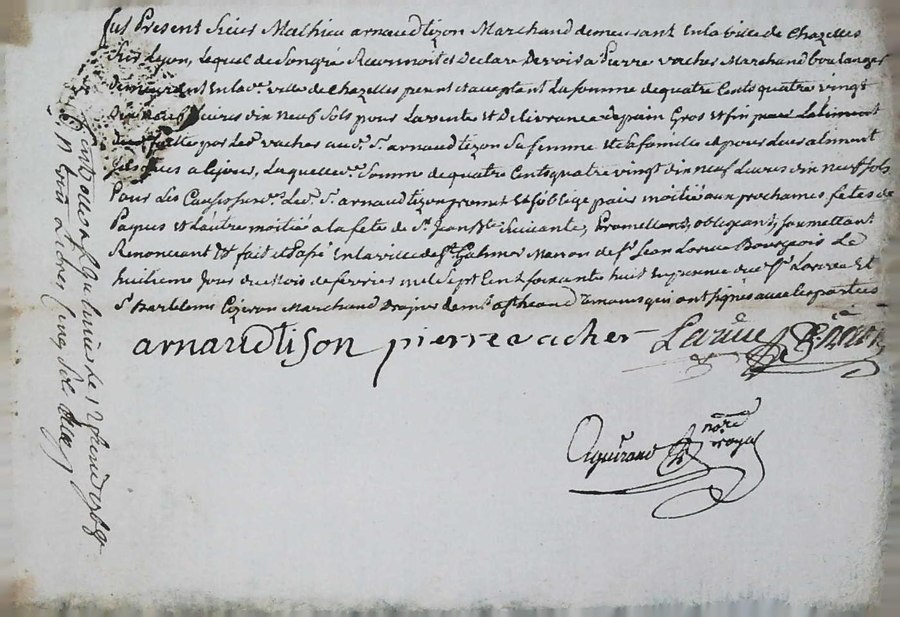 fut Present Sieur Mathieu arnaudtizon Marchand demeurant En la ville de Chazelles
Sur Lyon, Lequel de Son gré Reconnoit et Declare Devoir a Pierre vacher Marchand boulanger
demeurant En lad. ville de Chazelles present acceptant La somme de quatre Cents quatre vingt
Dix neuf Livres Dix neuf Sols pour La vente et Delivrance de pain Gros et fin
faittes par Led. vacher aud. Sr. arnaudtizon Sa femme et Sa famille et pour Leur aliment
jusques a Ce jour, Laquelle ditte Somme de quatre Cents quatre vingt dix neuf Livres dix neuf Sols
Pour Les Causes Susd. Led. Sr. arnaudtizon promet Et S'oblige paier moitié aux prochaines fetes de
Paques et L'autre moitié a la fete de St. Jean Bte. Suivante, Promettant, obligeant, soumettant
Renonçant &t fait et Passé En la ville de St. Galmier Maison de Sr. Jean Larüe Bourgeois Le
huitieme Jour du Mois de fevrier mil Sept Cent soixante huit En presence dud. Sr. Larüe Et
St. Barthelemi Cizeron Marchand qui ont signés avec les parties
arnaudtison pierre vacher Larüe
nore. royal
Controllé a St. Galmier Le 12 fevrier 1768
Livres Cinq Sols